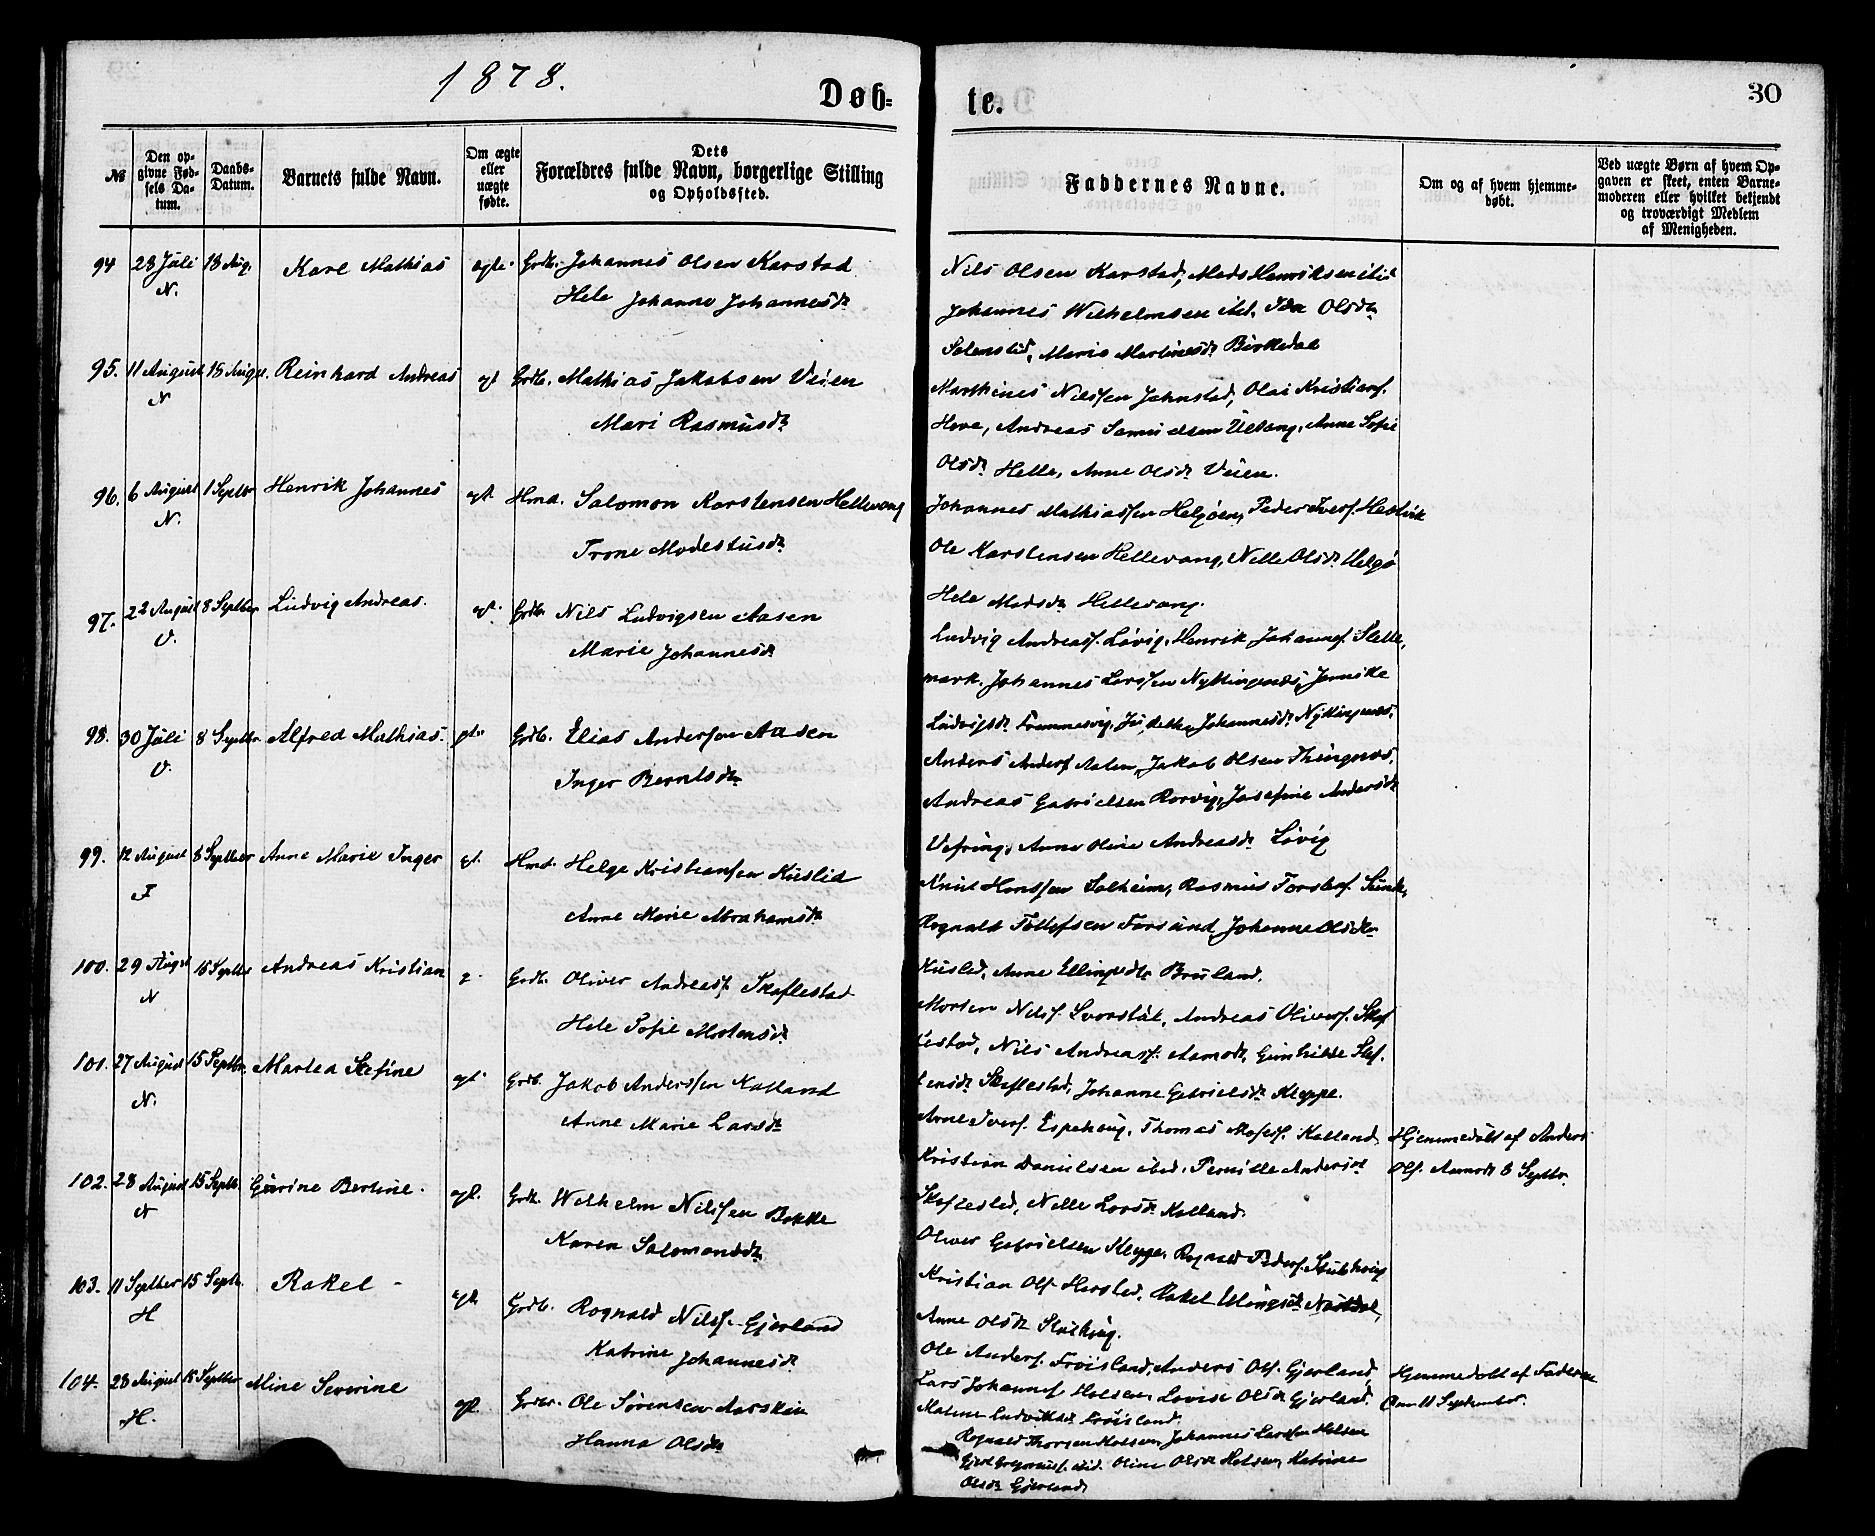 1878.
Døb-
te.
30
№
Den op-
givne Fød-
sels Da-
tum.
Daabs-
Datum.
Barnets fulde Navn.
Om ægte
eller
uægte
fødte.
Dets
Forældres fulde Navn, borgerlige Stilling
og Opholdssted.
Faddernes Navne.
Om og af hvem hjemme-
døbt.
Ved uægte Børn af hvem Op-
gaven er skeet, enten Barne-
moderen eller hvilket bekjendt
og troværdigt Medlem
af Menigheden.
94 28 Juli 18 Aug. Karl Mathias ægte Grdb. Johannes Olsen Karstad
N. Hele Johanne Johannesdr
Nils Olsen Karstad, Mads Henriksen ibid
Johannes Wilhelmsen ibd. Ida Olsdr
Solenslid, Marie Martinesdr Birkedal
95. 11 August 18 August. Reinhard Andreas ægt Grdb. Mathias Jakobsen Veien
N Mari Rasmusdr
Marthines Nilssen Jahnstad, Olai Kristians.
Hove, Andreas Samuelsen, Anne Sofie
Olsdr Helle, Anne Olsdr Veien.
96. 6 August 1 Septbr Henrik Johannes ægt. Hmd. Salomon Karstensen Hellevang
N. Trone Modestusdr
Johannes Mathiassen Helgøen, Peder Ivers.
Ole Karstensen Hellevang, Nelle Olsdr Helgø
Hele Madsdr Hellevang.
97. 22 August 8 Septber Ludvig Andreas. ægt. Grdb. Nils Ludvigsen Aasen
V. Marie Johannesdr
Ludvig Andreass. Løvig, Henrik Johanness. Sælle,
mark, Johannes Larssen Nyttingnæs, Jennike
Ludvigsdr Johannesdr Nyttingnæs.
98. 30 Juli 8 Septbr. Alfred Mathias. Grdb. Elias Anderssen Aasen
V. Inger Berntsdr
Anders Anders. Aasen, Jakob Olsen Thingnæs,
Andreas Gabrielsen Rørvig, Josefine Andersdr
Vefring, Anne Oline Andreasdr Løvig
99. 12 August 8 Septber Anne Marie Inger Hmd. Helge Kristiansen Kuslid
F Anne Marie Abrahamsdr
Knud Hanssen Solheim, Rasmus
Rognald Tollefsen Førsund, Johanne Olsdr
Kuslid, Anne Ellingsdtr Bruland.
100. 29 August 15 Septbr Andreas Kristian Grdb. Oliver Andreass. Skaflestad
N Hele Sofie Mortensdr
Morten Nilss. Svorstøl, Andreas Olivers. Skaf
lestad, Nils Andreass. Aamodt, Gunhilde Stef.
fensdr Skaflestad, Johanne Gabrielsdr Kleppe.
101. 27 August 15 Septbr. Martea Stefine ægt. Grdb. Jakob Anderssen Kalland
N. Anne Marie Larsdr
Arne Ivers. Espehaug, Thomas Moses. Kalland, Hjemmedøbt af Anders
Kristian Danielsen ibid. Pernille Andersdr Ols. Aamodt 6 Septbr.
Skaflestad, Nelle Larsdr Kalland.
102. 28 August 15 Septb. Gurine Bertine. ægt. Grdb. Wilhelm Nilssen Bakke
N Karen Salomonsdr
Oliver Gabrielsen Kleppe, Rognald Peders.
Kristian Ols. Rakel Ellingsdr
Anne Olsdr
103. 11 Septber 15 Septb. Rakel - ægt Grdb. Rognald Nilss. Gjerland
H Katrine Johannesdr
Ole Anders. Frøisland, Anders Ols. Gjerland, Hjemmedøbt af Faderen
Lars Johanness. Holsen, Lovise Olsdr Gjerland. den 11 September.
Malene Ludviksdr Frøisland.
104. 28 August 15 Septber Mine Severine ægt. Grdbr. Ole Sørensen Aarskin
H. Hanna Olsdr
Rognald Thorsen Holsen, Johannes Larssen Holsen
ibid. Oline Olsdr Holsen, Katrine
Olsdr Gjerland